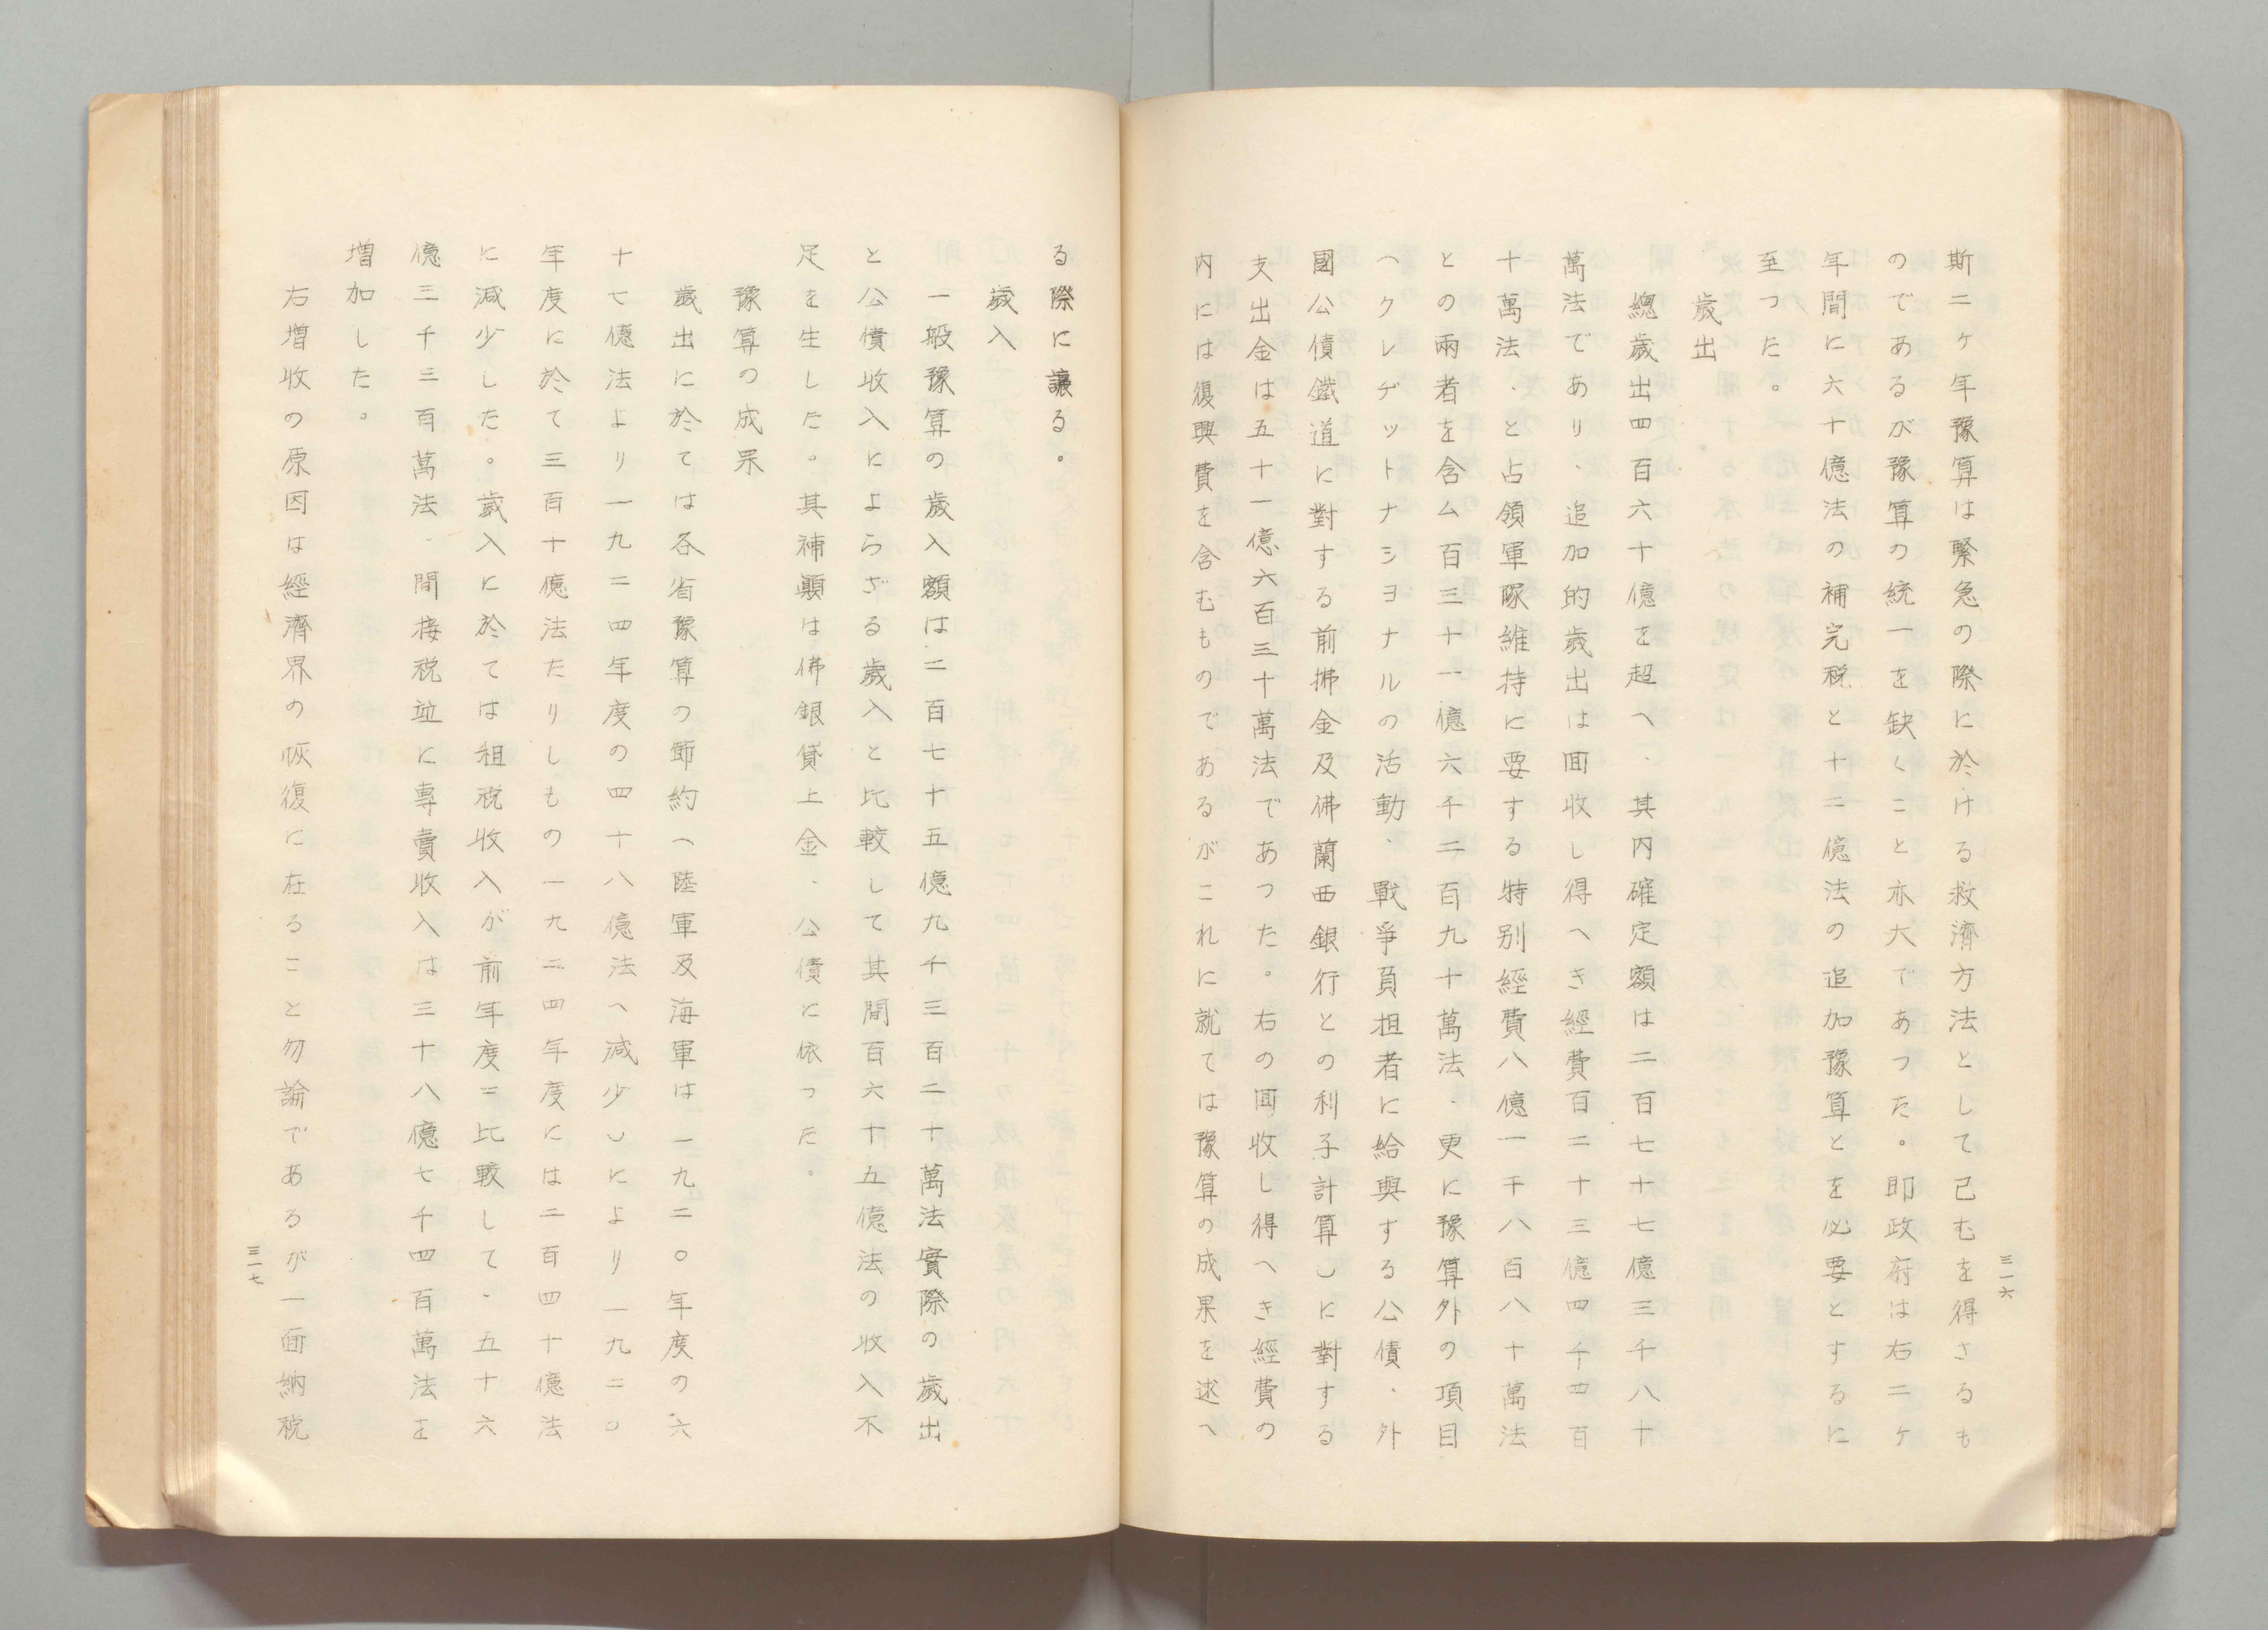 斯二ヶ年豫算は緊急の際に於ける救濟方法として已むを得さるも
のであるが豫算の統一を缺くこと亦大であつた。即政府は右二ヶ
年間に六十億法の補完税と十二億法の追加豫算とを必要とするに
至つた。
歳出
總歳出四百六十億を超へ、其内確定額は二百七十七億三千八十
萬法であり、追加的歳出は回收し得へき經費百二十三億四千四百
十萬法、と占領軍隊維持に要する特別經費八億一千八百八十萬法
との兩者を含ム百三十一億六千二百九十萬法、更に豫算外の項目
へクレデットナシヨナルの活動、戰爭負担者に給與する公債、外
國公債鐵道に對する前拂金及佛蘭西銀行との利子計算しに對する
支出金は五十一億六百三十萬法であつた。右の回收し得へき經費の
内には復興費を含むものであるがこれに就ては豫算の成果を述へ
三一六
る際に讓る。
歳入
一般豫算の歳入額は二百七十五億九千三百二十萬法實際の歳出
と公債收入によらざる歳入と比較して其間百六十五億法の收入不
足を生した。其補顚は佛銀貸上金、公債に依つた。
豫算の成果
歳出に於ては各省豫算の節約（陸軍及海軍は一九二〇年度の六
十七億法より一九二四年度の四十八億法へ減少）により一九二〇
年度に於て三百十億法たりしもの一九二四年度には二百四十億法
に減少した。歳入に於ては租税收入が前年度ニ比較して、五十六
億三千三百萬法、間接税竝に專賣收入は三十八億七千四百萬法を
増加した。
右増收の原因は經濟界の恢復に在ること勿論であるが一面納税
三一七